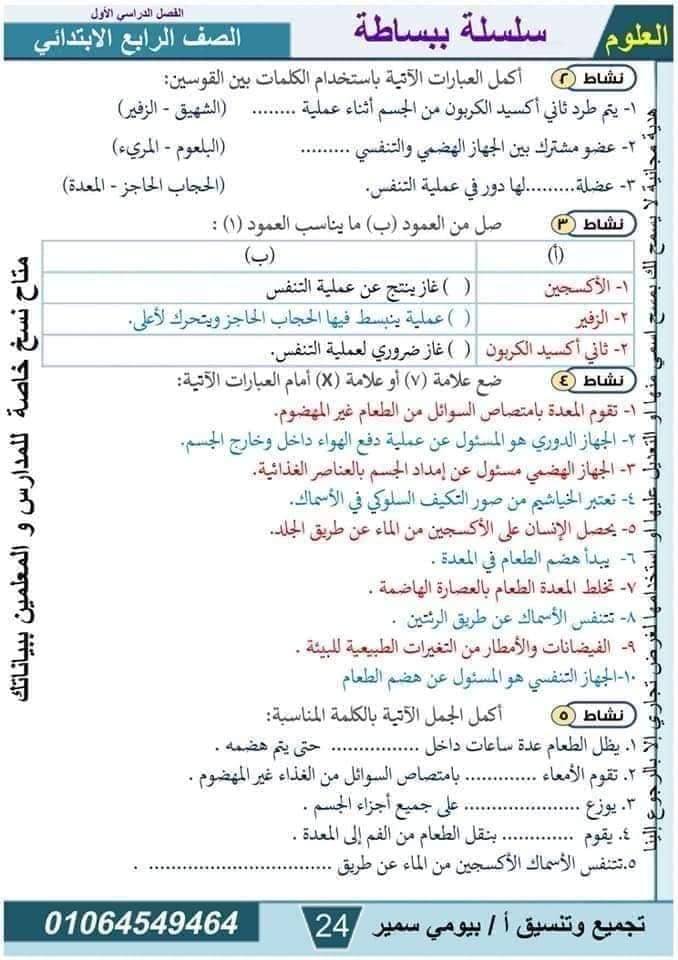 الفصل الدراسي الأول
العلوم
سلسلة ببساطة
الصف الرابع الابتدائي
نشاط ٢ أكمل العبارات الآتية باستخدام الكلمات بين القوسين:
١- يتم طرد ثاني أكسيد الكربون من الجسم أثناء عملية ........ (الشهيق - الزفير)
٢- عضو مشترك بين الجهاز الهضمي والتنفسي ......... (البلعوم - المريء)
٣- عضلة.........لها دور في عملية التنفس. (الحجاب الحاجز - المعدة)
نشاط ٣ صل من العمود (ب) ما يناسب العمود (١) :
(أ) (ب)
١- الأكسجين ( ) غاز ينتج عن عملية التنفس
٢- الزفير ( ) عملية ينبسط فيها الحجاب الحاجز ويتحرك لأعلى.
٢- ثاني أكسيد الكربون ( ) غاز ضروري لعملية التنفس.
نشاط ٤ ضع علامة (٧) أو علامة (X) أمام العبارات الآتية:
١- تقوم المعدة بامتصاص السوائل من الطعام غير المهضوم.
٢- الجهاز الدوري هو المسئول عن عملية دفع الهواء داخل وخارج الجسم.
٣- الجهاز الهضمي مسئول عن إمداد الجسم بالعناصر الغذائية.
٤- تعتبر الخياشيم من صور التكيف السلوكي في الأسماك.
٥- يحصل الإنسان على الأكسجين من الماء عن طريق الجلد.
٦- يبدأ هضم الطعام في المعدة .
٧- تخلط المعدة الطعام بالعصارة الهاضمة .
٨- تتنفس الأسماك عن طريق الرئتين .
٩- الفيضانات والأمطار من التغيرات الطبيعية للبيئة .
١٠-الجهاز التنفسي هو المسئول عن هضم الطعام
نشاط ٥ أكمل الجمل الآتية بالكلمة المناسبة:
١. يظل الطعام عدة ساعات داخل ............... حتى يتم هضمه .
٢. تقوم الأمعاء ............ بامتصاص السوائل من الغذاء غير المهضوم .
٣. يوزع ................... على جميع أجزاء الجسم .
٤. يقوم ............ بنقل الطعام من الفم إلى المعدة .
٥.تتنفس الأسماك الأكسجين من الماء عن طريق ............................... .
متاح نسخ خاصة للمدارس و المعلمين ببياناتك
هدية مجانية لا يسمح لك بمسح اسمي منها او التعديل عليها او استخدامها لغرض تجاري إلا بالرجوع إلينا
تجميع وتنسيق أ / بيومي سمير
24
01064549464